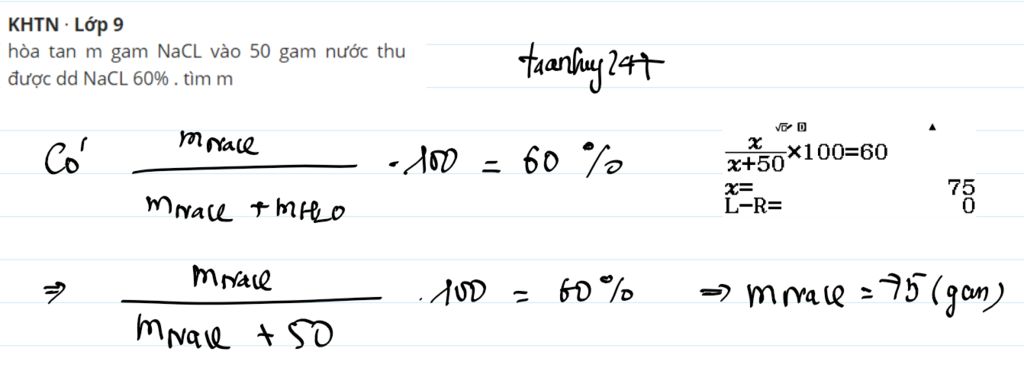 KHTN · Lớp 9
hòa tan m gam NaCL vào 50 gam nước thu
được dd NaCL 60% . tìm m
tranhuy24t
Có m NaCl / (m NaCl + m H2O) . 100 = 60 %
x/(x+50)×100=60
x= 75
L−R= 0
⇒ m NaCl / (m NaCl + 50) . 100 = 60% ⇒ m NaCl = 75 (gam)